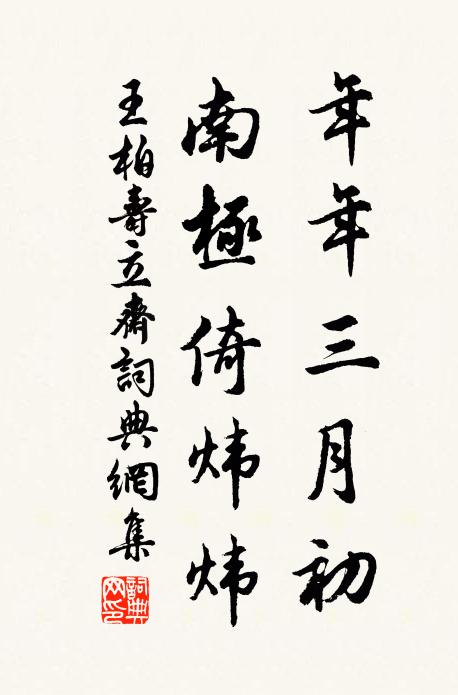 年年三月初
南極倚煒煒
王柏壽立齋詞典網集
詞典網印